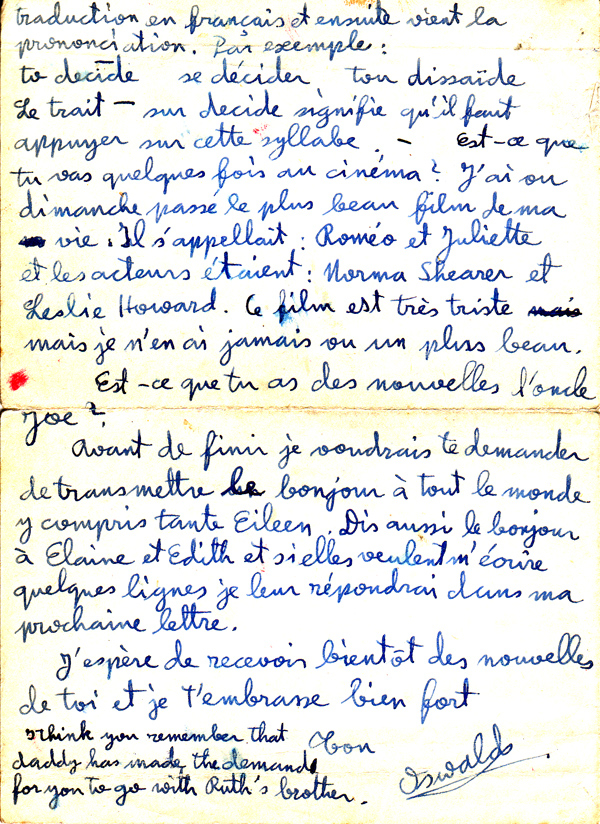 traduction en français et ensuite vient la
prononciation. Par exemple :
to decīde se décider tou dissaïde
Le trait — sur decide signifie qu'il faut
appuyer sur cette syllabe. — Est-ce que
tu vas quelques fois au cinéma? J'ai vu
dimanche passé le plus beau film de ma
vie. Il s'appellait : Roméo et Juliette
et les acteurs étaient : Norma Shearer et
Leslie Howard. Ce film est très triste mais
mais je n'en ai jamais vu un plus beau.
Est-ce que tu as des nouvelles l'oncle
Joe?
Avant de finir je voudrais te demander
de transmettre le bonjour à tout le monde
y compris tante Eileen. Dis aussi le bonjour
à Elaine et Edith et si elles veulent m'écrire
quelques lignes je leur répondrai dans ma
prochaine lettre.
J'espère de recevoir bientôt des nouvelles
de toi et je t'embrasse bien fort
Ton
Oswald
I think you remember that
daddy has made the demand
for you to go with Ruth's brother.